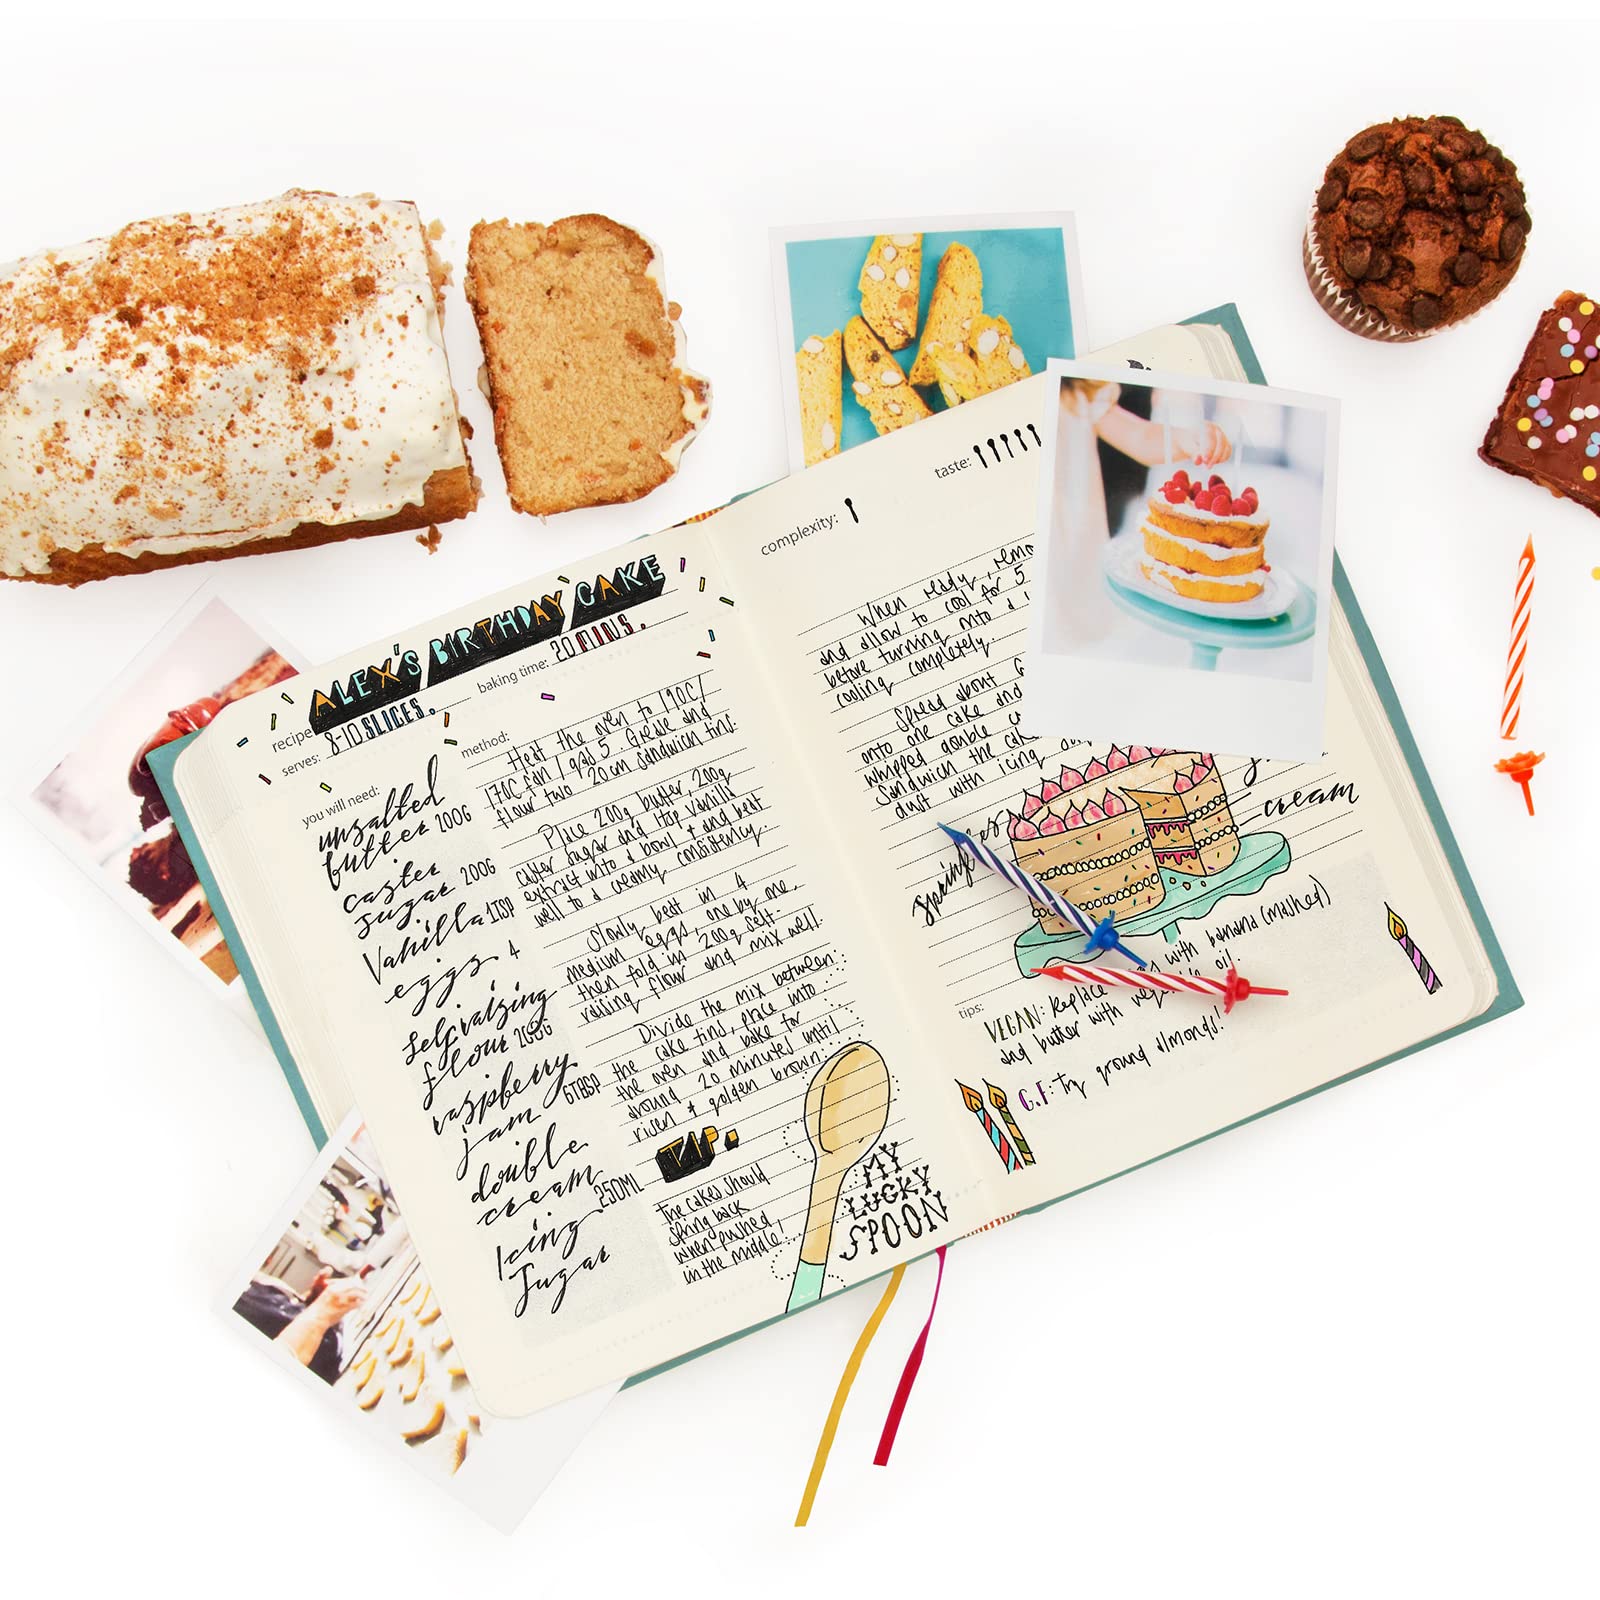 ALEX'S BIRTHDAY CAKE
recipe
serves: 8-10 SLICES.
baking time: 20 MINS.
you will need:
unsalted
butter 200G
caster
sugar 200G
Vanilla 1TSP
eggs 4
self raising
flour 200G
raspberry
jam 6TBSP
double
cream 250ML
Icing
Sugar
method:
Heat the oven to 190C/
170C fan / gas 5. Grease and
flour two 20cm sandwich tins.
Place 200g butter, 200g
caster sugar and 1tsp vanilla
extract into a bowl & and beat
well to a creamy consistency
Slowly beat in 4
medium eggs, one by one,
then fold in 200g self-
raising flour and mix well.
Divide the mix between
the cake tins, place into
the oven and bake for
around 20 minutes until
risen & golden brown.
TIP.
The cakes should
spring back
when pushed
in the middle!
MY
LUCKY
SPOON
complexity:
taste:
When ready, remo
and allow to cool for 5
before turning into a
cooling completely.
Spread about
onto one cake and
whipped double
Sandwich the cak
dust with icing
cream
tips:
VEGAN: Replace with banana (mashed)
and butter with vegetable oil.
G.F: Try ground almonds!